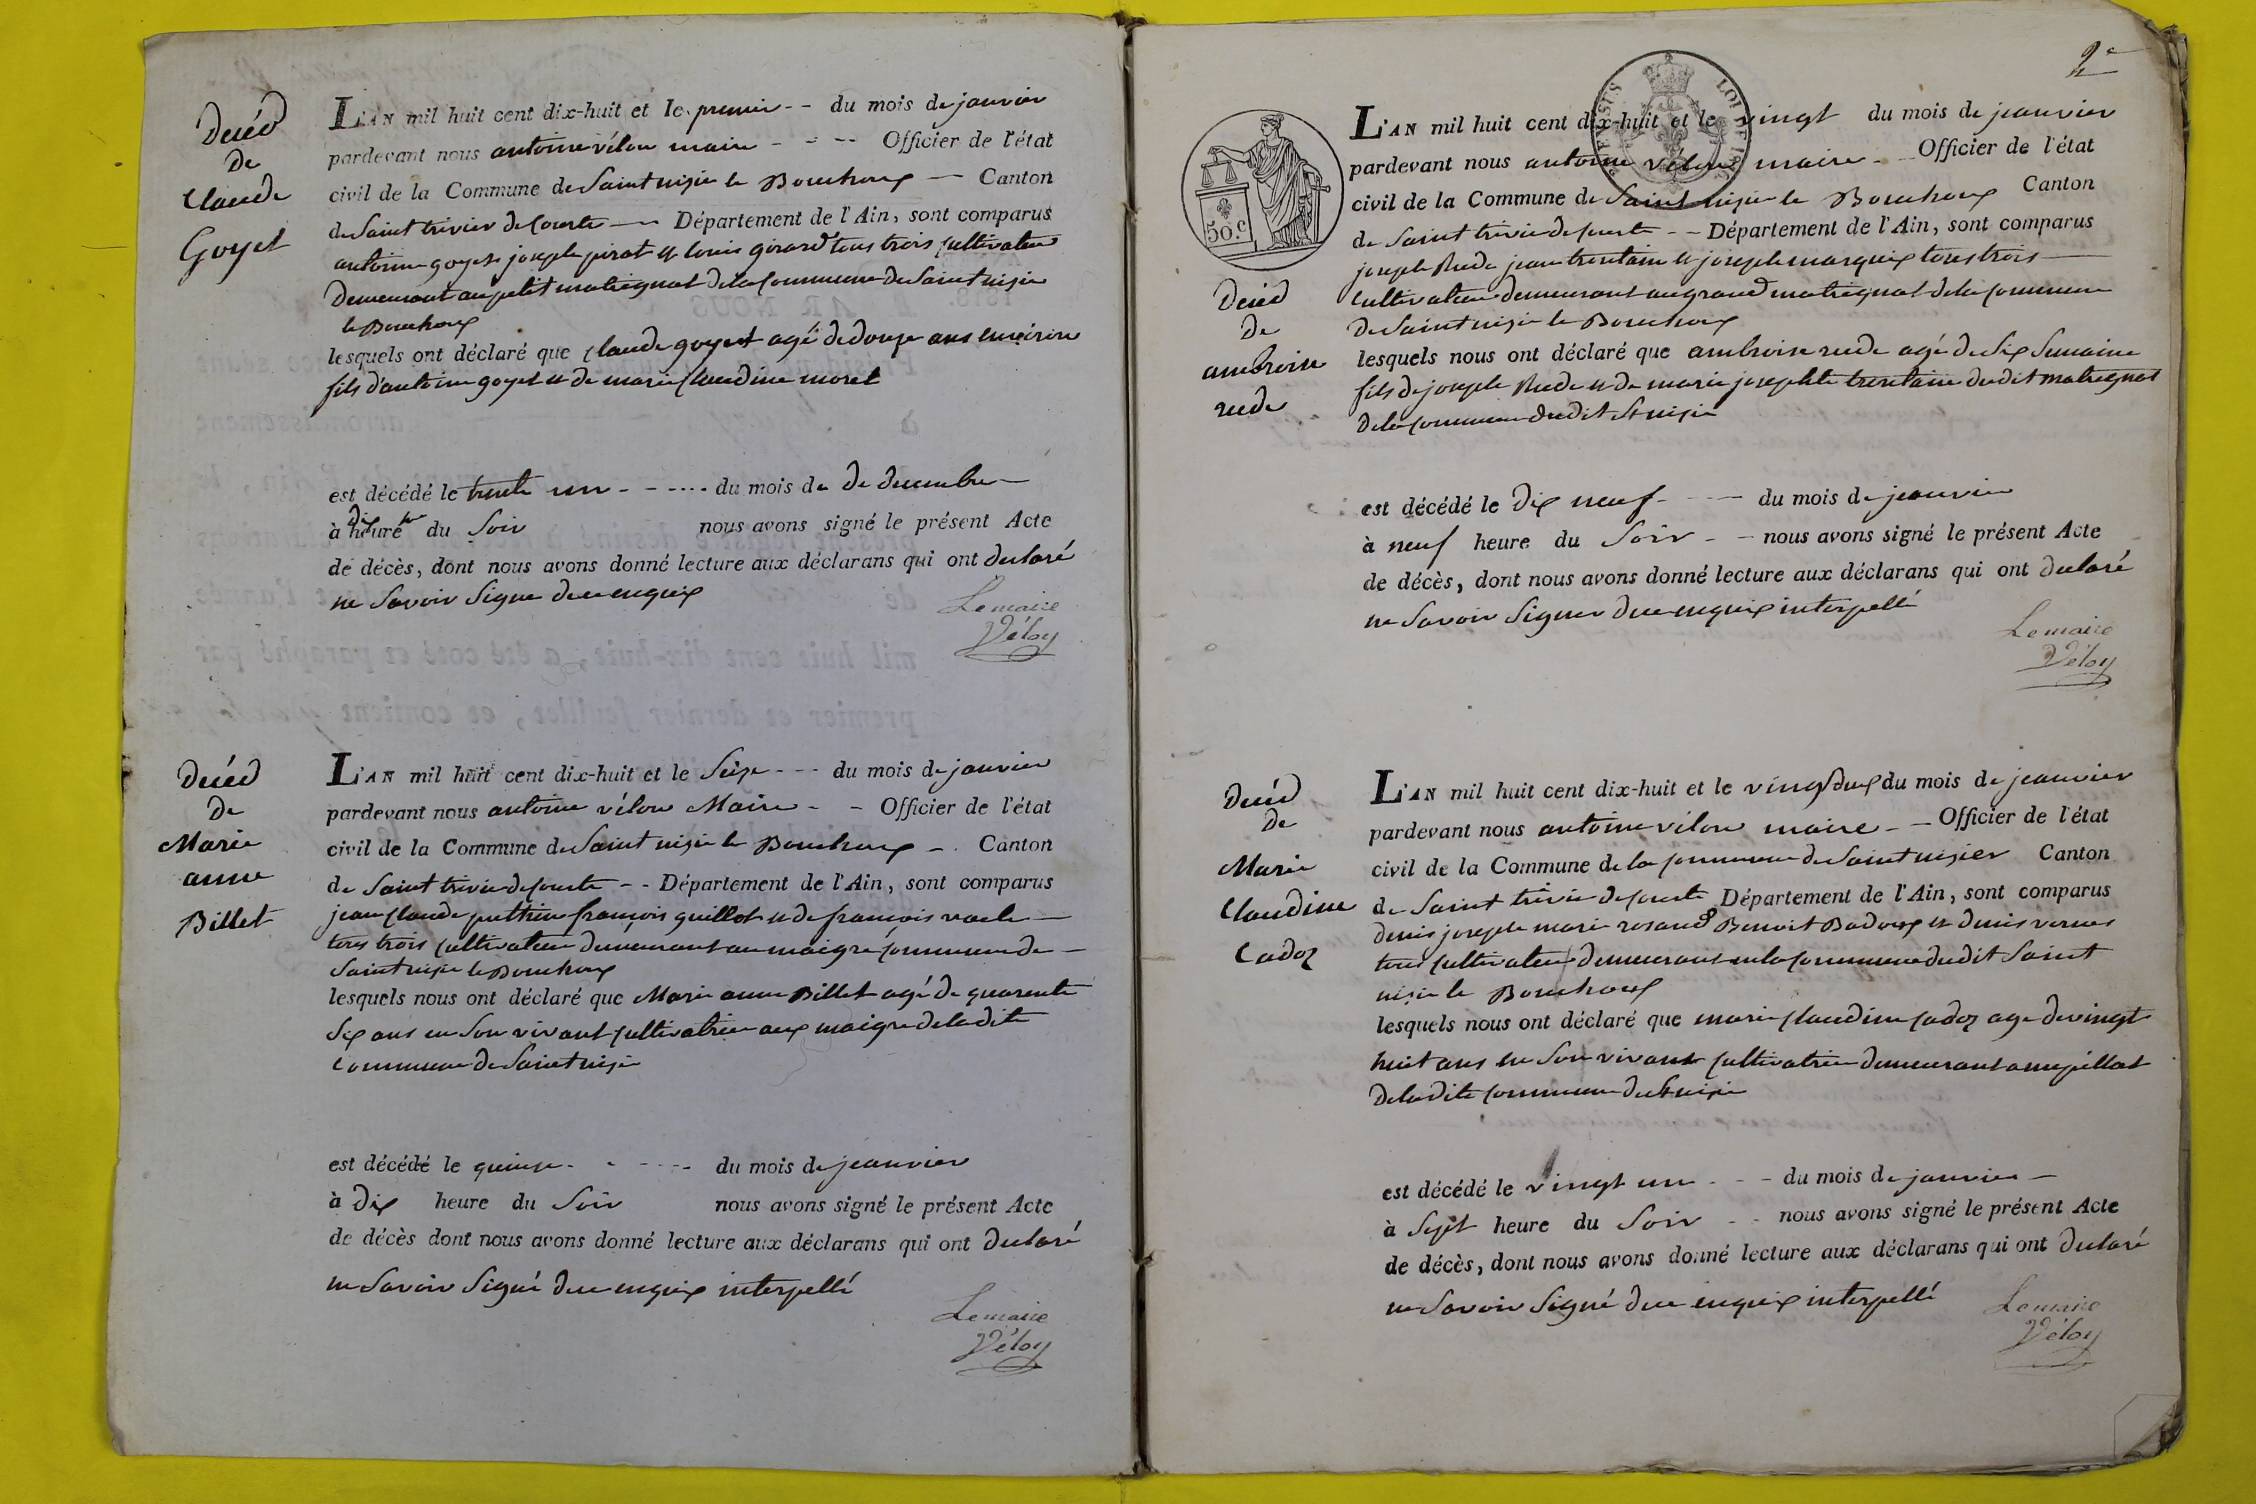 Décéd
de
Claude
Goyet
L'AN mil huit cent dix-huit et le premier -- du mois de janvier
pardevant nous antoine véloy maire - - -- Officier de l'état
civil de la Commune de Saint nizier le Bouchoux — Canton
de Saint trivier de Courte — Département de l'Ain, sont comparus
antoine goyet joseph pirat et louis girard tous trois cultivateur
demeurant au petit matrignat de la commune de Saint nizier
le Bouchoux
lesquels ont déclaré que Claude goyet agé de douze ans environ
fils d'antoine goyet et de marie Claudine moret
est décédé le trente un - - .... du mois de de decembre —
à dix heure du Soir nous avons signé le présent Acte
de décès, dont nous avons donné lecture aux déclarans qui ont declaré
ne Savoir Signe de ce enquix
Lemaire
Véloy
Décéd
de
Marie
anne
Billet
L'AN mil huit cent dix-huit et le Seize --- du mois de janvier
pardevant nous antoine véloy Maire - - Officier de l'état
civil de la Commune de Saint nizier le Bouchoux -. Canton
de Saint trivier de Courte -- Département de l'Ain, sont comparus
jean Claude puthin françois guillot et de françois —
tous trois Cultivateur demeurant au maigre Commune de —
Saint nizier le Bouchoux
lesquels nous ont déclaré que Marie anne Billet agé de quarente
Six ans en Son vivant Cultivatrice aux maigre de la dite
Commune de Saint nizier
est décédé le quinze - - ---- du mois de jeanvier
à dix heure du Soir nous avons signé le présent Acte
de décès dont nous avons donné lecture aux déclarans qui ont declaré
ne Savoir Signé de ce enquix interpellé
Lemaire
Véloy
2e
50.c
L'AN mil huit cent dix-huit et le vingt du mois de jeanvier
pardevant nous antoine véloy maire - - Officier de l'état
civil de la Commune de Saint nizier le Bouchoux Canton
de Saint trivier de Courte -- Département de l'Ain, sont comparus
joseph Rude jean trentain et joseph marquix tous trois —
Cultivateur demeurant au grand matrignat de la Commune
de Saint nizier le Bouchoux
Décéd
de
ambroise
rude
lesquels nous ont déclaré que ambroise rude agé de Six Semaine
fils de joseph Rude et de marie josephte trentain dudit matrignat
de la Commune dudit St nizier
est décédé le dix neuf - --- du mois de jeanvier
à neuf heure du Soir -- nous avons signé le présent Acte
de décès, dont nous avons donné lecture aux déclarans qui ont declaré
ne Savoir Signer de ce enquix interpellé
Lemaire
Véloy
Décéd
de
Marie
Claudine
Cadoz
L'AN mil huit cent dix-huit et le vingt deux du mois de jeanvier
pardevant nous antoine véloy maire - - Officier de l'état
civil de la Commune de la Commune de Saint nizier Canton
de Saint trivier de Courte Département de l'Ain, sont comparus
denis joseph marie rosand Benoit Badoux et denis
tous Cultivateur demeurant en la Commune dudit Saint
nizier le Bouchoux
lesquels nous ont déclaré que marie Claudine Cadoz age de vingt
huit ans en Son vivant Cultivatrice demeurant
de la dite Commune de St nizier
est décédé le vingt un - - - du mois de janvier —
à Sept heure du Soir - - nous avons signé le présent Acte
de décès, dont nous avons donné lecture aux déclarans qui ont declaré
ne Savoir Signé de ce enquix interpellé
Lemaire
Véloy